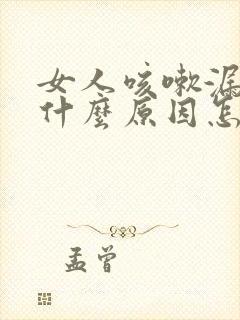 女人咳嗽漏
什麼原因怎
孟曾